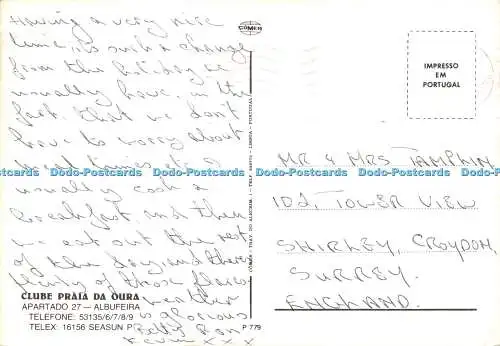 Having a very nice
time, its such a change
from the holiday we
usually have, in the
fact that we don't
have to worry about
meal times etc. I
usually cook a
breakfast and then
we eat out the rest
of the day, and there
plenty of those places.
weather
is glorious
Betty Ron
Kevin x x x
CLUBE PRAIA DA OURA
APARTADO 27 — ALBUFEIRA
TELEFONE: 53135/6/7/8/9
TELEX: 16156 SEASUN P
P 779
CÓMER
CÓMER - TRAV. DO ALECRIM, 1 - TELF. - LISBOA - PORTUGAL
IMPRESSO
EM
PORTUGAL
MR & MRS TAMPLIN
102, TOWER VIEW
SHIRLEY, CROYDON,
SURREY.
ENGLAND.
Dands-Postcards Dands-Postcards Dands-Postcards Dands-Postcards Dands-Postcards